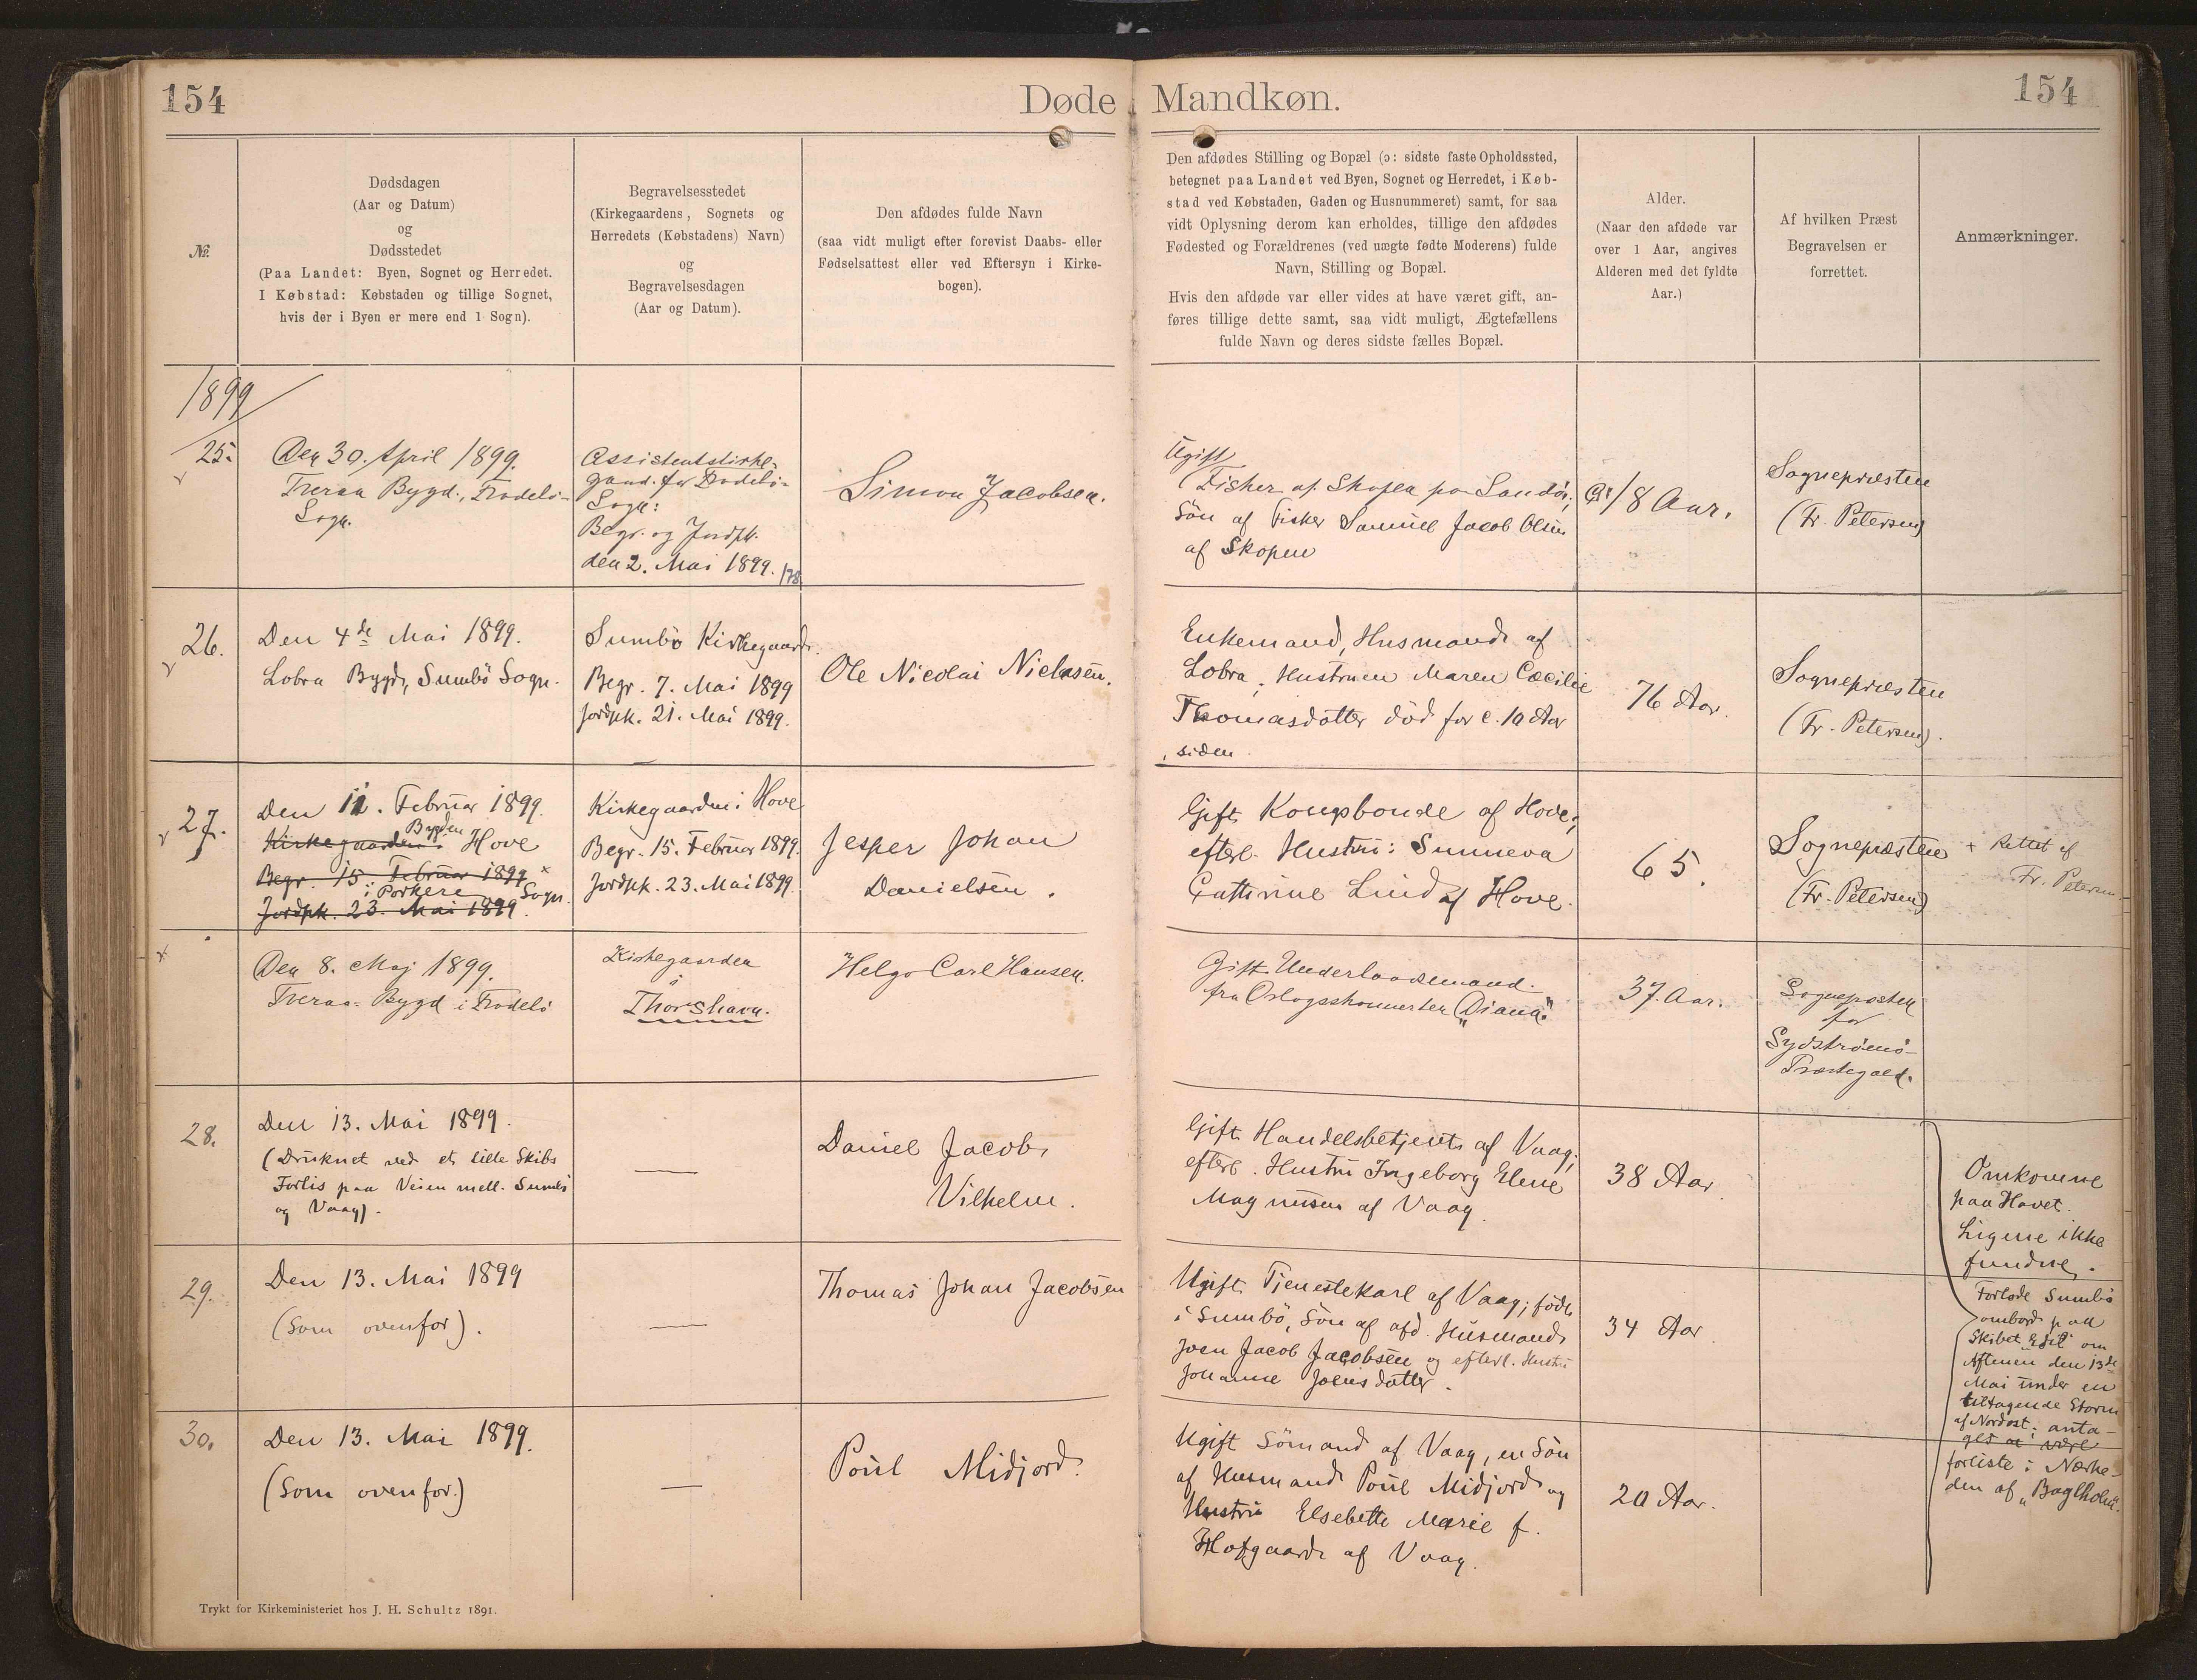 154
Døde
Mandkøn.
154
№.
Dødsdagen
(Aar og Datum)
og
Dødsstedet
(Paa Landet: Byen, Sognet og Herredet.
I Købstad: Købstaden og tillige Sognet,
hvis der i Byen er mere end 1 Sogn).
Begravelsesstedet
(Kirkegaardens, Sognets og
Herredets (Købstadens) Navn)
og
Begravelsesdagen
(Aar og Datum).
Den afdødes fulde Navn
(saa vidt muligt efter forevist Daabs- eller
Fødselsattest eller ved Eftersyn i Kirke-
bogen).
Den afdødes Stilling og Bopæl (ɔ: sidste faste Opholdssted,
betegnet paa Landet ved Byen, Sognet og Herredet, i Køb-
stad ved Købstaden, Gaden og Husnummeret) samt, for saa
vidt Oplysning derom kan erholdes, tillige den afdødes
Fødested og Forældrenes (ved uægte fødte Moderens) fulde
Navn, Stilling og Bopæl.
Hvis den afdøde var eller vides at have været gift, an-
føres tillige dette samt, saa vidt muligt, Ægtefællens
fulde Navn og deres sidste fælles Bopæl.
Alder.
(Naar den afdøde var
over 1 Aar, angives
Alderen med det fyldte
Aar.)
Af hvilken Præst
Begravelsen er
forrettet.
Anmærkninger.
1899
25.
Den 30. April 1899.
Tveraa Bygd., Frodebö-
Sogn.
Assistentskirke-
gaard. for Frodebö-
Sogn:
Begr. og Jordpk.
den 2. Mai 1899.
Simon Jacobsen.
Ugift
Fisker af Skopen paa Sandö;
Sön af Fisker Samuel Jacob Olsen
af Skopen
18 Aar.
Sognepræsten
(Fr. Petersen)
26.
Den 4de Mai 1899.
Lobra Bygd, Sumbö Sogn.
Sumbö Kirkegaard.
Begr. 7. Mai 1899
Jordpk. 21. Mai 1899.
Ole Nicolai Nielsen.
Enkemand, Husmand af
Lobra, Hustruen Maren Cæcilie
Thomasdatter död for c. 10 Aar
siden.
76 Aar.
Sognepræsten
(Fr. Petersen).
27.
Den 11. Februar 1899.
Kirkegaarden i Bygden Hove
Begr. 15. Februar 1899 ×
i Porkere Sogn.
Jordpk. 23. Mai 1899.
Kirkegaarden i Hove
Begr. 15. Februar 1899.
Jordpk. 23. Mai 1899.
Jesper Johan
Danielsen.
Gift Kongsbonde af Hove;
efterl. Hustru: Sunneva
Cathrine Lind af Hove.
65.
Sognepræsten
(Fr. Petersen)
+ Rettet af
Fr. Petersen
Den 8. Maj 1899.
Tveraa-Bygd i Frodebö
Kirkegaarden
i
Thorshavn.
Helge Carl Hansen.
Gift. Underbaadsmand.
fra Orlogsskonnerten "Diana".
37. Aar.
Sognepræsten
for
Sydströmö-
Præstegæld.
28.
Den 13. Mai 1899.
(Druknet ved et lille Skibs
Forlis paa Veien mell. Sumbö
og Vaag).
Daniel Jacob
Vilhelm.
Gift Handelsbetjent af Vaag;
efterl. Hustru Ingeborg Elene
Magnussen af Vaag.
38 Aar.
Omkomne
paa Havet.
Ligene ikke
fundne.
29.
Den 13. Mai 1899
(Som ovenfor).
Thomas Johan Jacobsen
Ugift Tjenestekarl af Vaag; födt
i Sumbö, Sön af afd. Husmand
Joen Jacob Jacobsen og efterl. Hustru
Johanne Joensdatter.
34 Aar.
Forlode Sumbö
ombord paa
Skibet om
Aftenen den 13de
Mai under en
tiltagende Storm
af Nordost; anta-
ges at være
forliste i Nærhe-
den af "Baglholm".
30.
Den 13. Mai 1899.
(Som ovenfor.)
Poul Midjord.
Ugift Sömand af Vaag, en Sön
af Husmand Poul Midjord og
Hustru Elsebeth Marie f.
Hofgaard af Vaag.
20 Aar.
Trykt for Kirkeministeriet hos J. H. Schultz 1891.